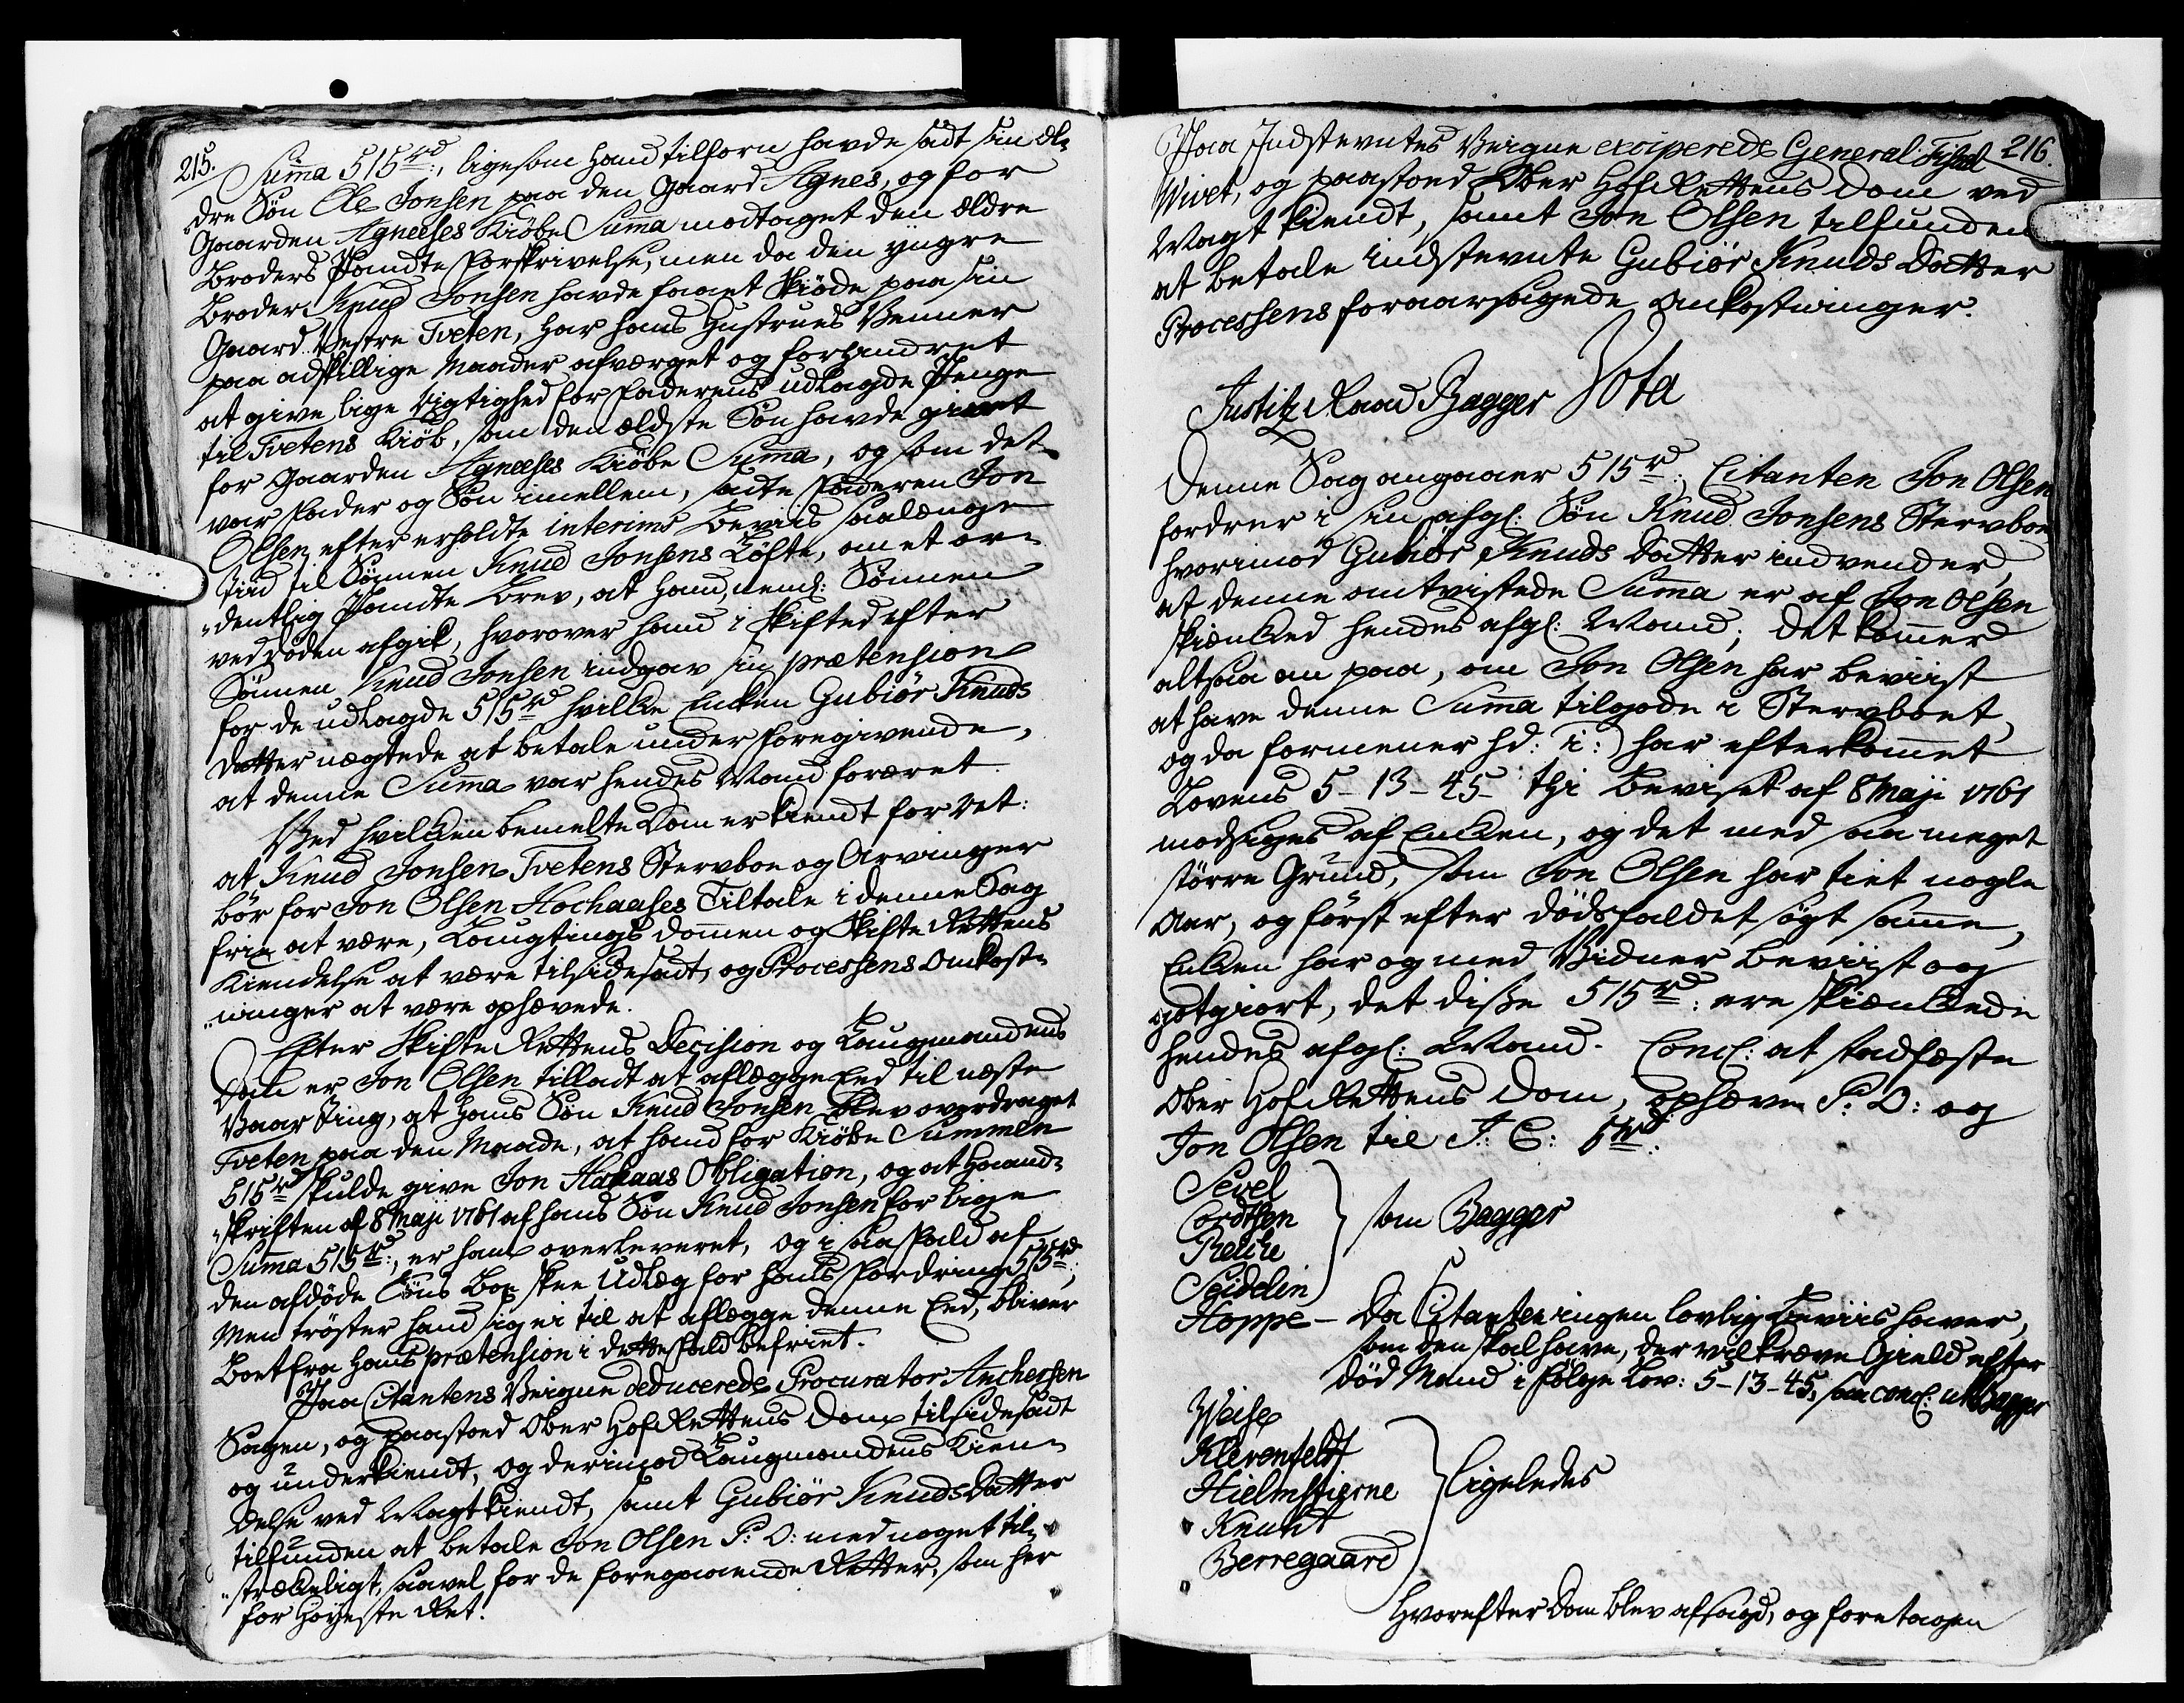 215.
Suma 515 rd:, ligesom hand tilforn havde ladt sin æl-
dre Søn Ole Jonsen paa den Gaard Agnes, og for
Gaarden Agneeses Kiøbe Suma modtaget den ældre
Broders Pandte Forskrivelse, men da den yngre
Broder Knud Jonsen havde faaet Skiøde paa sin
Gaard Vestre Tveten, har hans Hustrues Venner
paa adskillige Maader afværget og forhindret
at give lige Rigtighed for Faderens udlagde Penge
til Tvetens Kiøb, som den ældste Søn havde giort
for Gaarden Agneeses Kiøbe Suma, og som det
var Fader og Søn imellem, satte Faderen Jon
Olsen efter erholdte interims Beviis saalænge
Lid til Sønnen Knud Jonsens Løfte, om et or-
"dentlig Pandte Brev, at hand, neml: Sønnen
ved Døden afgik, hvorover hand i Skiftet efter
Sønnen Knud Jonsen indgav sin prætension
for de udlagde 515 rd hvilke Enken Gubiør Knuds
Datter nægtede at betale under Foregivende,
at denne Suma var hendes Mand foræret.
Ved hvilken bemelte Dom er kiendt for Ret:
at Knud Jonsen Tvetens Stervboe og Arvinger
bør for Jon Olsen Hochaases Tiltale i denne Sag
frie at være, Laugtings Domen og Skifte Rettens
Kiendelse at være tilsidesadt, og Processens Omkost-
"ninger at være ophævede.
Efter Skifte Rettens Decision og Laugmandens
Dom er Jon Olsen tilladt at aflægge Eed til næste
Vaar Ting, at hans Søn Knud Jonsen blev overdraget
Tveten paa den Maade, at hand for Kiøbe Summen
515 rd skulde give Jon Hakaas Obligation, og at Haand-
"skriften af 8 Maji 1761 af hans Søn Knud Jonsen for lige
Suma 515 rd:, er ham overleveret, og i saa Fald af
den afdøde Søns Boe skee Udlæg for hans Fordring 515 rd;
Men trøster hand sig ei til at aflægge denne Eed, bliver
Boet fra hans prætension i dette Fald befriet.
Paa Citantens Veigne deducerede Procurator Anchersen
Sagen, og paastoed Ober Hof Rettens Dom tilsidesadt
og underkiendt, og derimod Laugmandens Kien-
delse ved Magt kiendt, samt Gubiør Knuds Datter
tilfunden at betale Jon Olsen P: O: med noget til-
"strækkeligt, saavel for de foregaaende Retter, som her
for Høyeste Ret.
216.
Paa Indstevntes Veigne exciperede General Fiscal
Wivet, og paastoed Ober Hof Rettens Dom ved
Magt kiendt, samt Jon Olsen tilfunden
at betale indstevnte Gubiør Knuds Datter
Processens foraarsagede Omkostninger.
Vota
Justitz Raad Bagger
Denne Sag angaaer 515 rd:, Citanten Jon Olsen
fordrer i sin afgl: Søn Knud Jonsens Stervboe
hvorimod Gubiør Knuds Datter indvender,
at denne omtvistede Suma er af Jon Olsen
skienked hendes afgl: Mand; det komer
altsaa an paa, om Jon Olsen har beviist
at have denne Suma tilgode i Stervboet,
og da formener hd: i:) har efterkomet
Lovens 5-13-45 thi Beviset af 8 Maji 1761
modsiges af Enken, og det med saa meget
større Grund, som Jon Olsen har tiet nogle
Aar, og først efter Dødsfaldet søgt samme,
Enken har og med Vidner beviist og
gotgiort, det disse 515 rd: ere skienkede
hendes afgl: Mand. Concl: at stadfæste
Ober Hof Rettens Dom, ophæve P: O: og
Jon Olsen til J: C: 5 rd:
Sevel
Cordtsen
Reiche
Seidelin
som Bagger
Hoppe – Da Citanten ingen lovlig Beviis haver,
som den skal have, der vil kræve Gield efter
død Mand i følge Lov: 5-13-45, saa concl: ut Bagger
Weise
Klevenfeldt
Hielmstierne
Knuht
Berregaard
Ligeledes
Hvorefter Dom blev afsagd, og foretagen